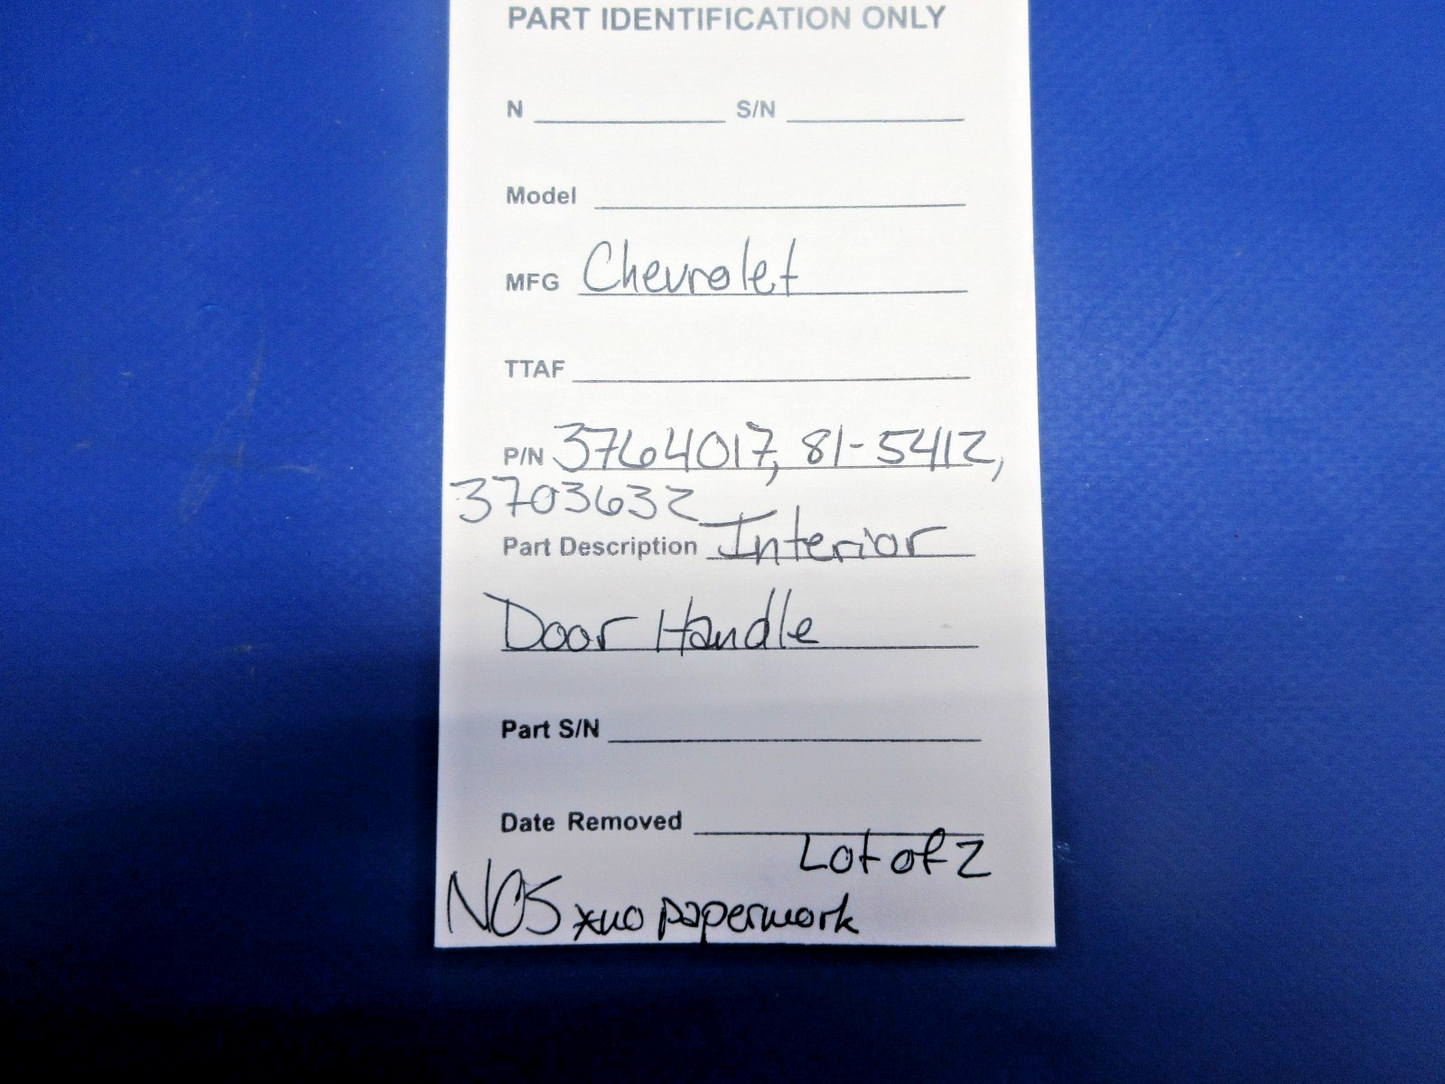 PART IDENTIFICATION ONLY
N ________ S/N ________
Model ________
MFG Chevrolet
TTAF ________
P/N 3764017, 81-5412,
3703632
Part Description Interior
Door Handle
Part S/N ________
Date Removed ________
Lot of 2
NOS *no paperwork